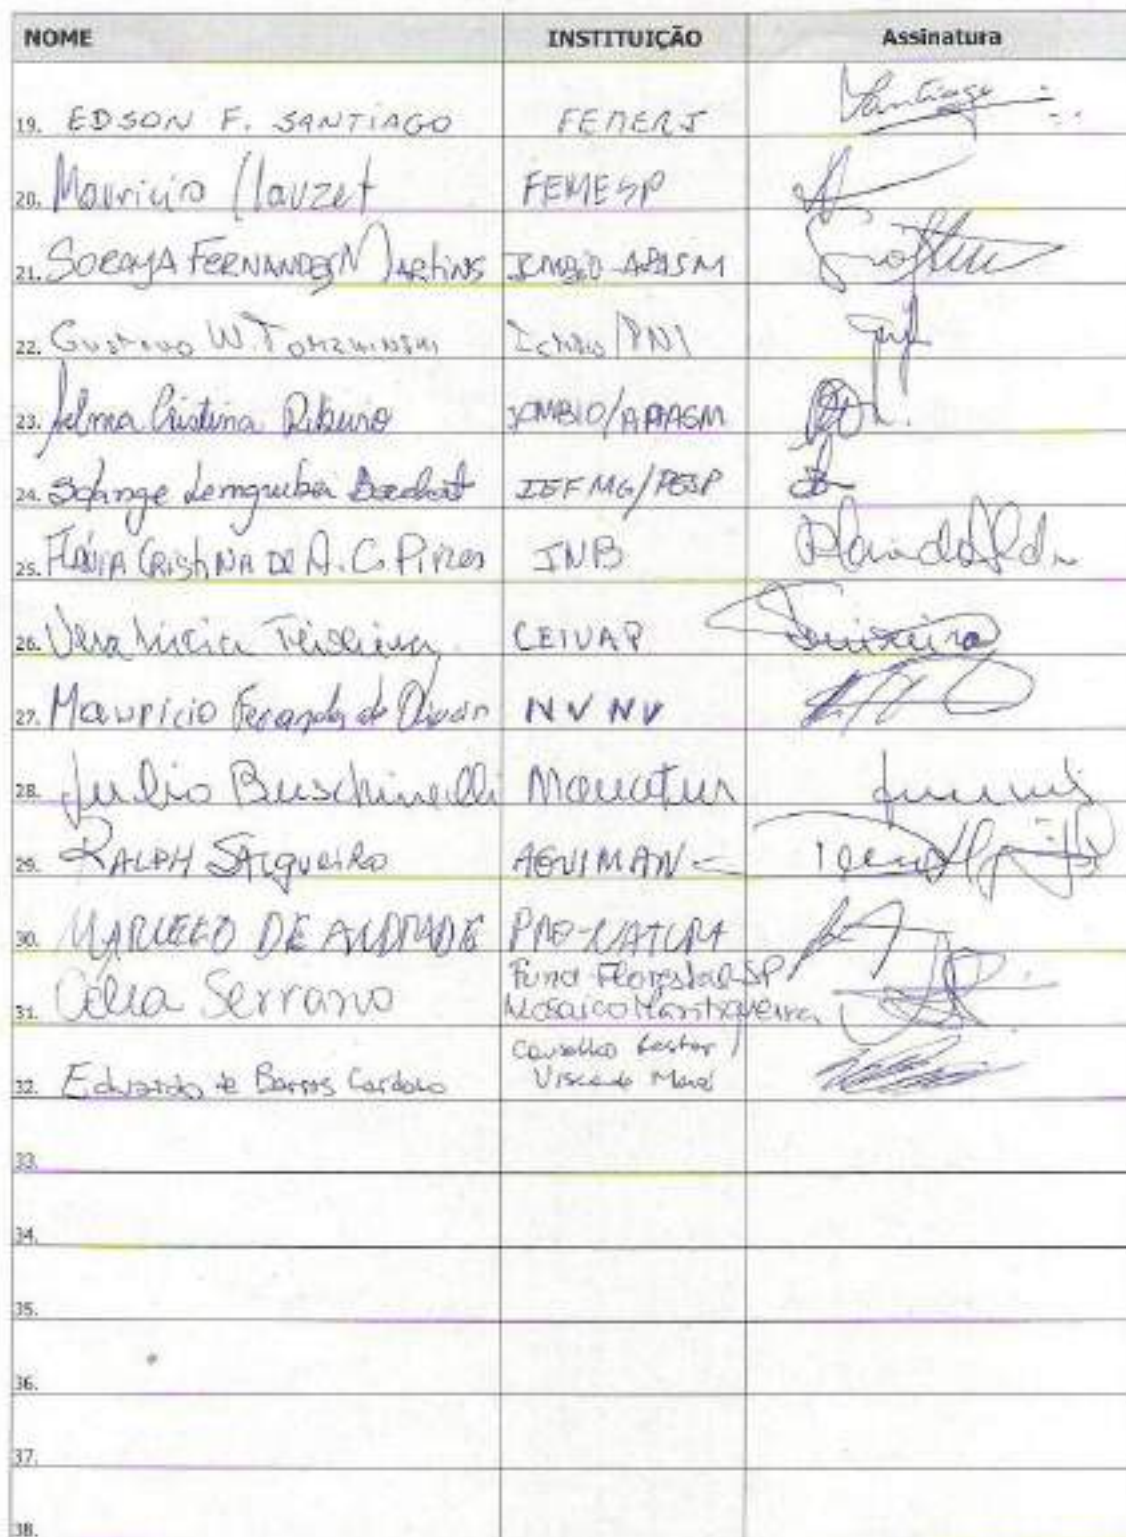 NOME INSTITUIÇÃO Assinatura
19. EDSON F. SANTIAGO FEMERJ Santiago
20. Mauricio Clauzet FEMESP
21. SORAYA FERNANDES MARTINS ICMBIO-APASM
22. Gustavo W. ICMBio/PNI
23. Cristina Ribeiro ICMBIO/APASM
24. Solange Lemgruber IEFMG/PESP
25. FLÁVIA CRISTINA DE A. C. PIRES INB
26. Vera Lucia Teixeira CEIVAP Teixeira
27. Mauricio Fernandes de NVNV
28. Julio Buschinelli Mauatur
29. RALPH SALGUEIRO AGUIMAN
30. MARCELO DE ANDRADE PRO-NATURA
Fund Florestal SP
31. Célia Serrano Mosaico Mantiqueira
Conselho Gestor /
32. Eduardo de Barros Cardoso Visc de Mauá
33.
34.
35.
36.
37.
38.